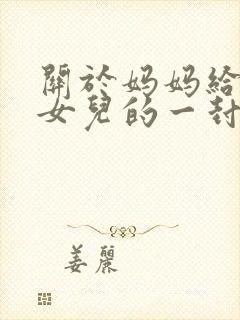 關於媽媽給
女兒的一封
姜麗